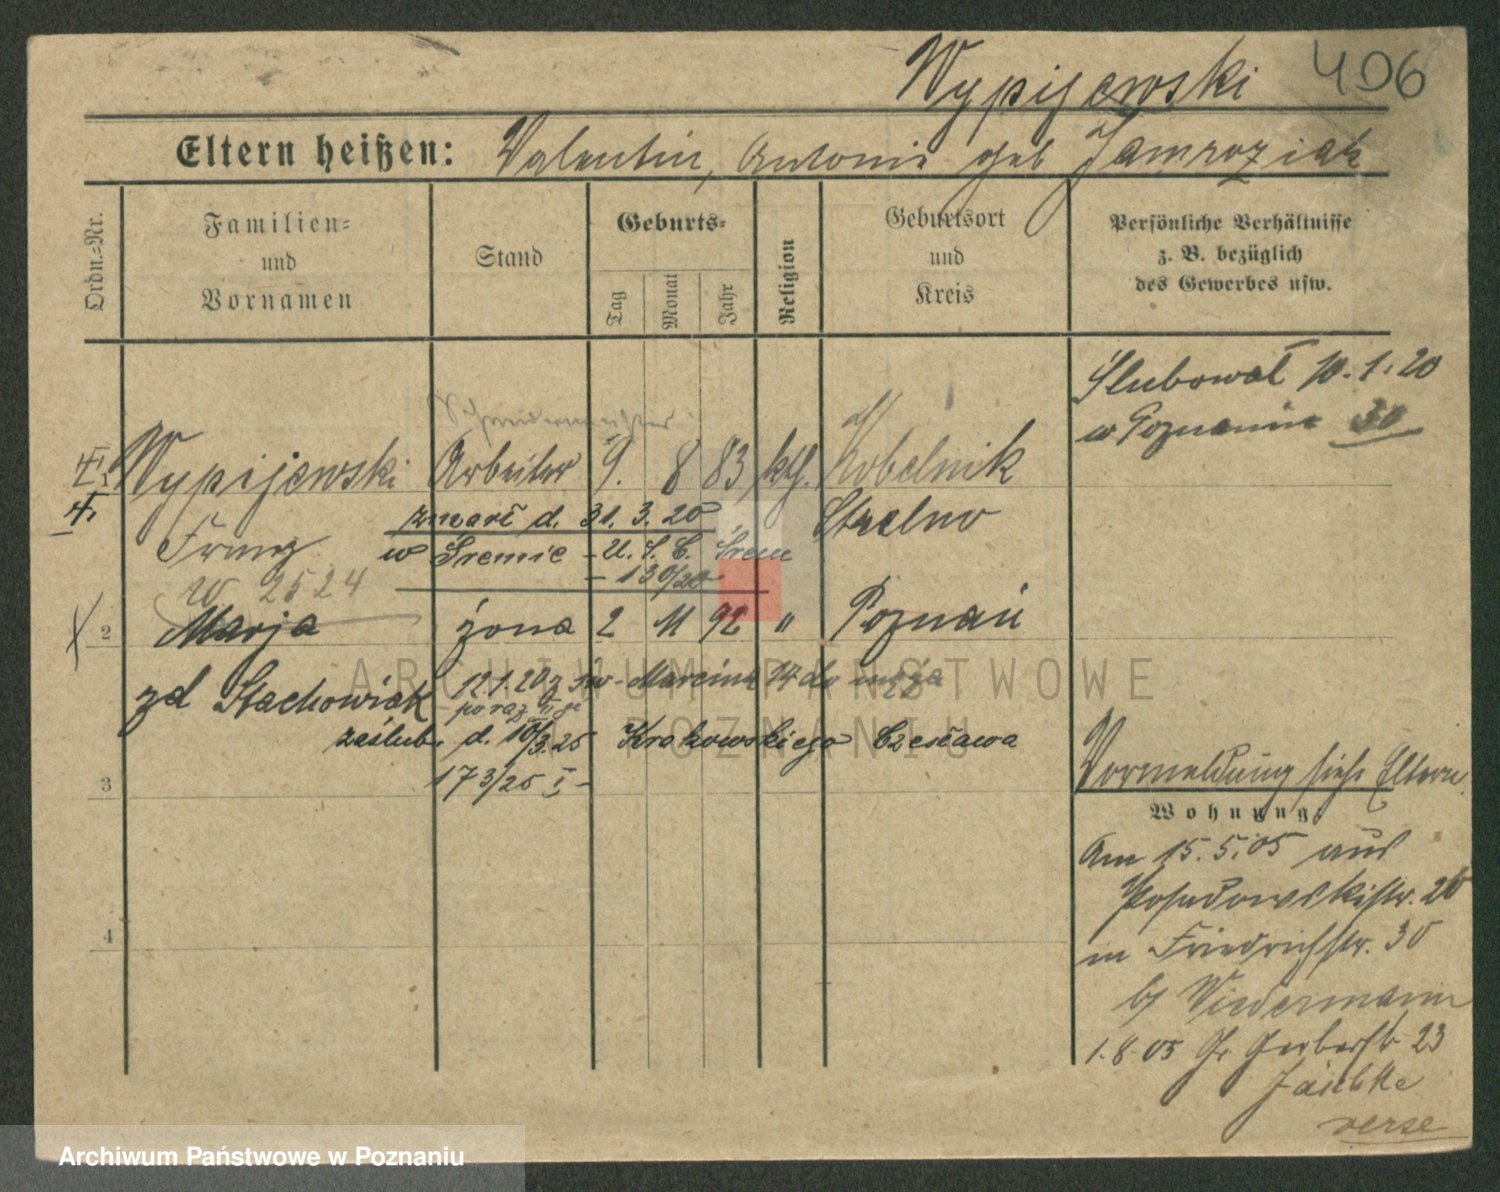 Wypijewski 406
Eltern heißen: Valentin, Antonie geb Jamroziak
Ordn.=Nr.
Familien=
und
Vornamen
Stand
Geburts=
Tag
Monat
Jahr
Religion
Geburtsort
und
Kreis
Persönliche Verhältnisse
z. B. bezüglich
des Gewerbes usw.
Ślubował 10.1.20
w Poznaniu 30
Wypijewski Arbeiter 9. 8 83 kth. Kobelnik
zmarł d. 31.3.20 Strelno
Franz w Śremie - U.S.C. Śrem
- 130/20
W 2524
2 Marja żona 2 11 92 " Poznań
zd Stachowiak 12.1.20 z św. Marcina 74 do męża
po raz II gi
zaślub. d. 10/3.25 Krakowskiego Czesława
3 173/25 I -
Vormeldung siehe Eltern.
Wohnung.
Am 15.5.05 aus
4
Posadowskistr. 20
in Friedrichstr. 30
b/ Wiedermann
1.8.05 Gr. Gerberstr. 23
Jäschke
verse
ARCHIWUM PAŃSTWOWE
W POZNANIU
Archiwum Państwowe w Poznaniu